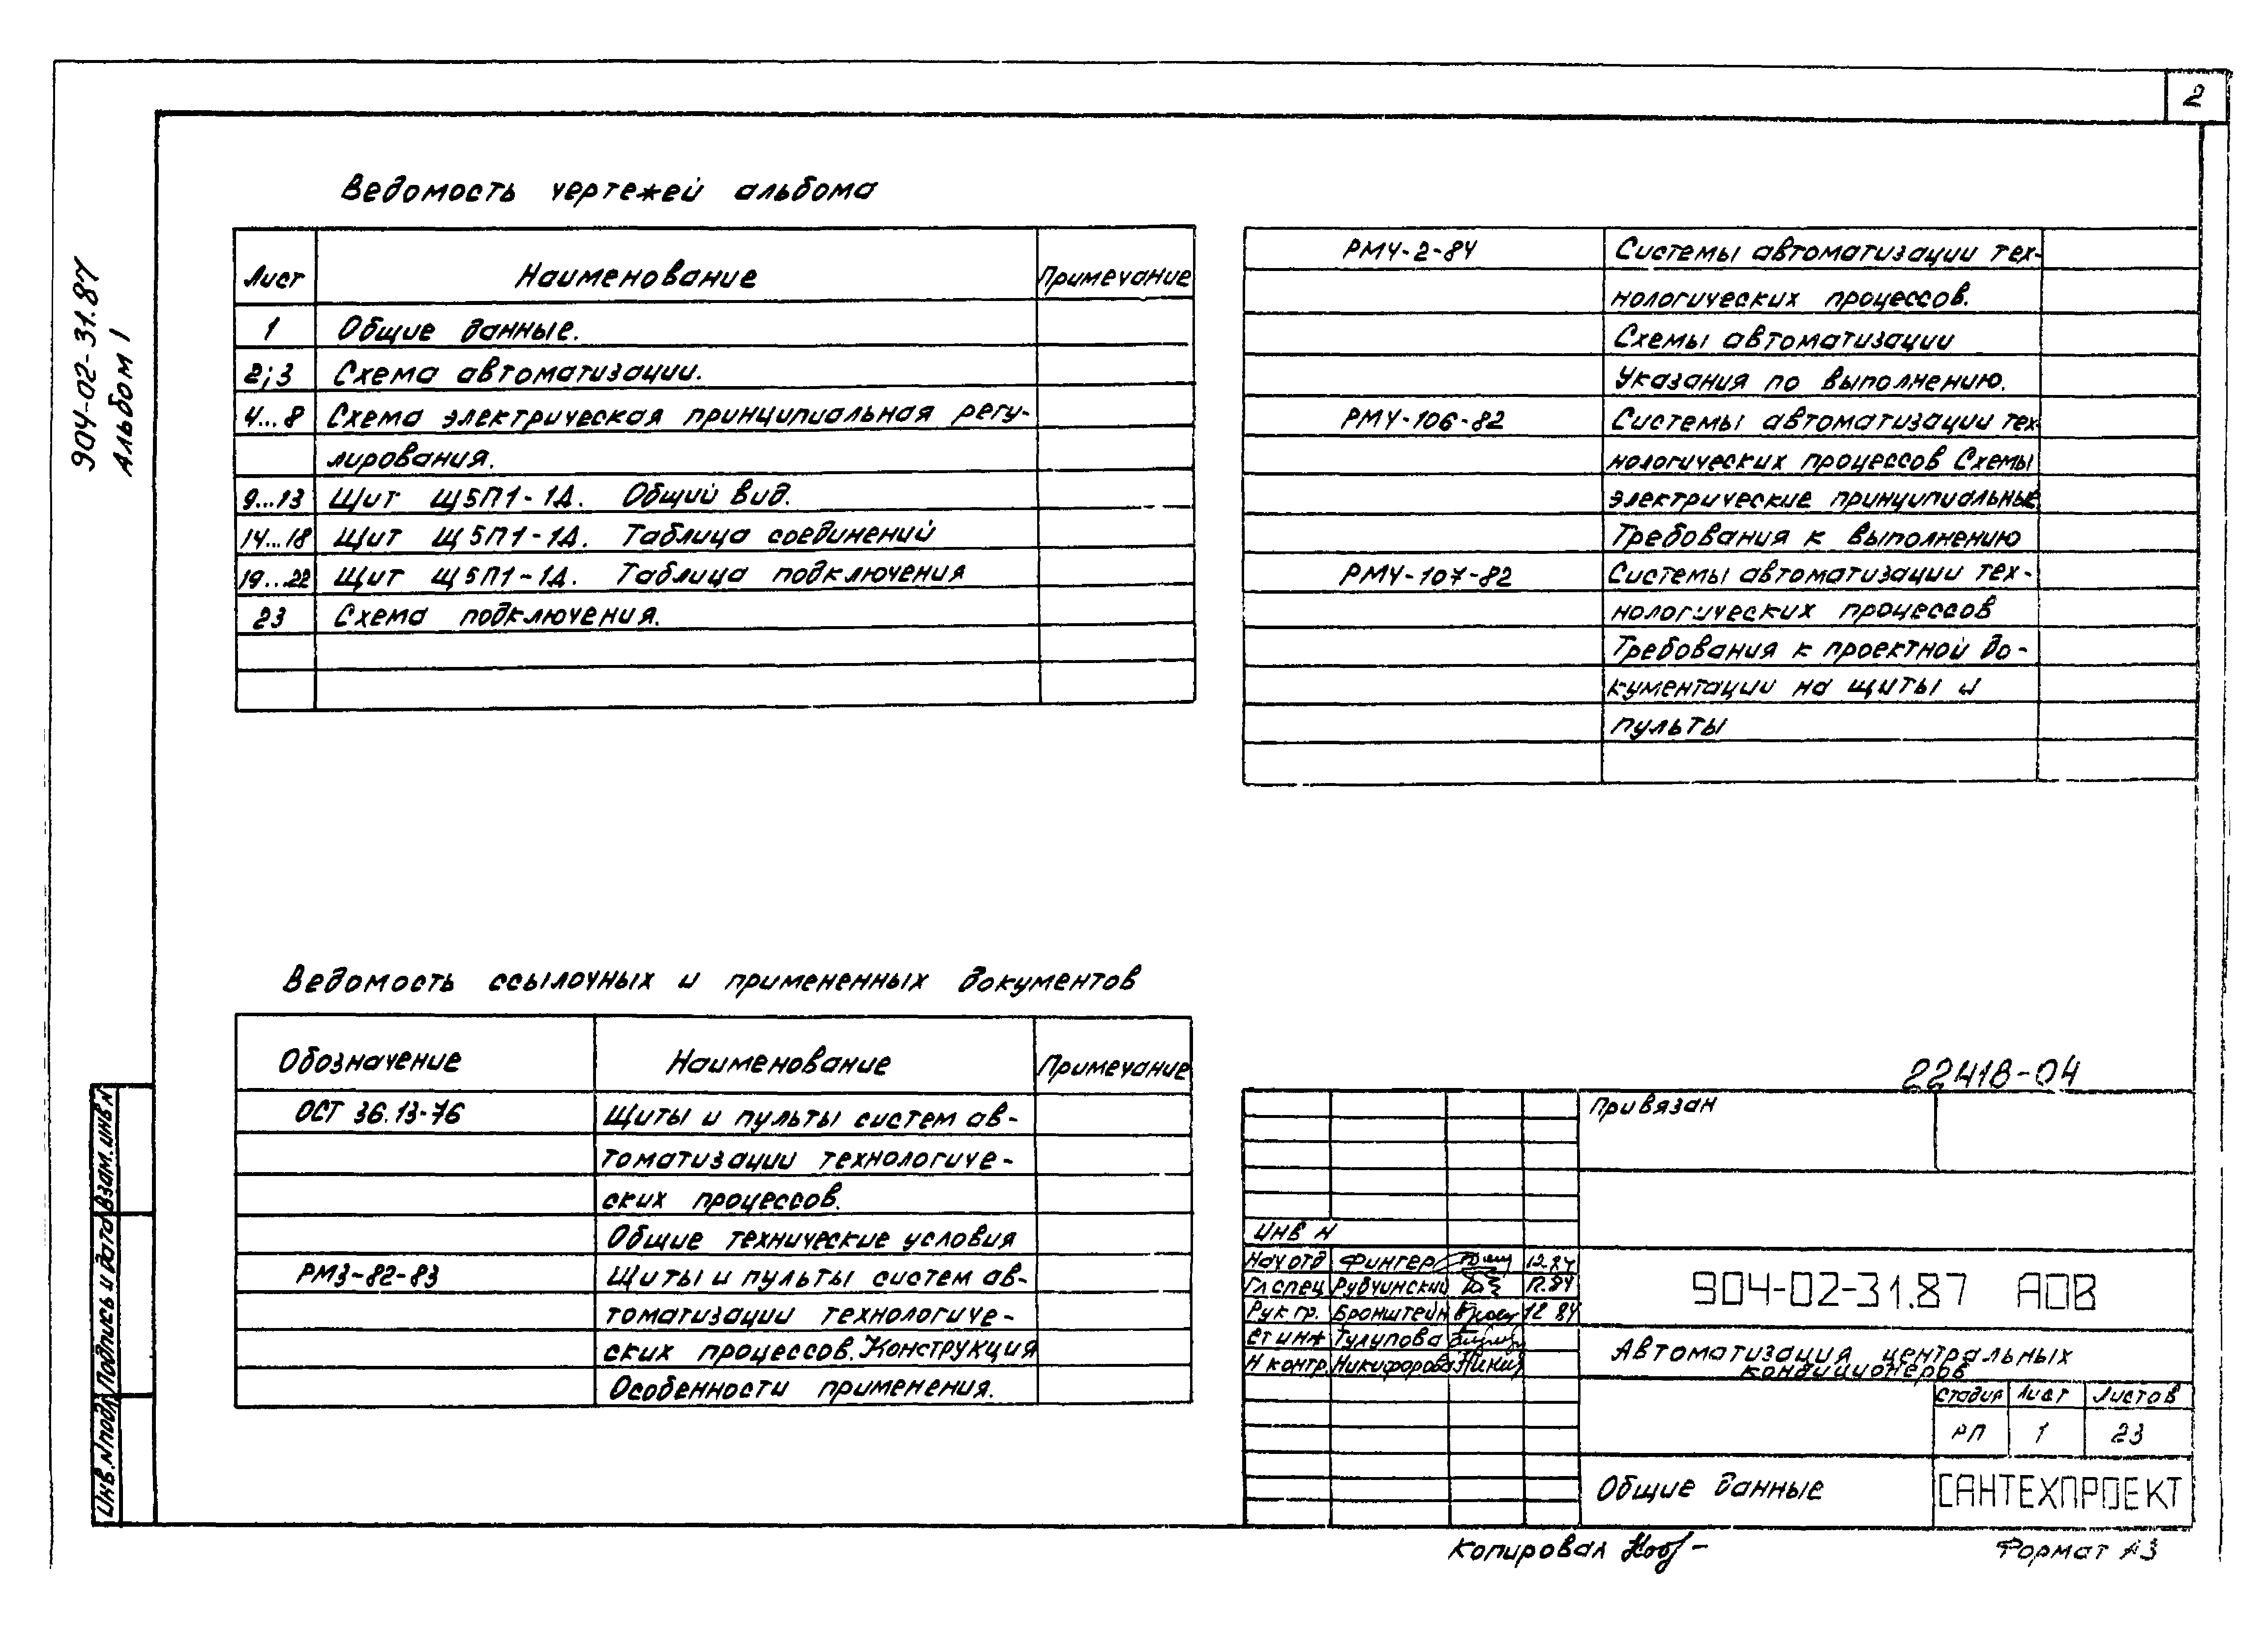 2
904-02-31.87
Альбом 1
Ведомость чертежей альбома
Лист Наименование Примечание
1 Общие данные.
2;3 Схема автоматизации.
4...8 Схема электрическая принципиальная регу-
лирования.
9...13 Щит Щ5П1-1Д. Общий вид.
14...18 Щит Щ5П1-1Д. Таблица соединений
19...22 Щит Щ5П1-1Д. Таблица подключения
23 Схема подключения.
РМ4-2-84 Системы автоматизации тех-
нологических процессов.
Схемы автоматизации
Указания по выполнению.
РМ4-106-82 Системы автоматизации тех-
нологических процессов Схемы
электрические принципиальные
Требования к выполнению
РМ4-107-82 Системы автоматизации тех-
нологических процессов
Требования к проектной до-
кументации на щиты и
пульты
Ведомость ссылочных и примененных документов
Обозначение Наименование Примечание
ОСТ 36.13-76 Щиты и пульты систем ав-
томатизации технологиче-
ских процессов.
Общие технические условия
РМ3-82-83 Щиты и пульты систем ав-
томатизации технологиче-
ских процессов. Конструкция
Особенности применения.
22418-04
Привязан
Инв N
Нач отд Фингер 12.84
Гл спец Рубчинский 12.84
Рук гр. Бронштейн 12 84
Ст инж Тулупова
Н контр. Никифорова
904-02-31.87 АОВ
Автоматизация центральных
кондиционеров
Стадия Лист Листов
РП 1 23
Общие данные
САНТЕХПРОЕКТ
Взам. инв N
Подпись и дата
Инв. N подл
Копировал
Формат А3